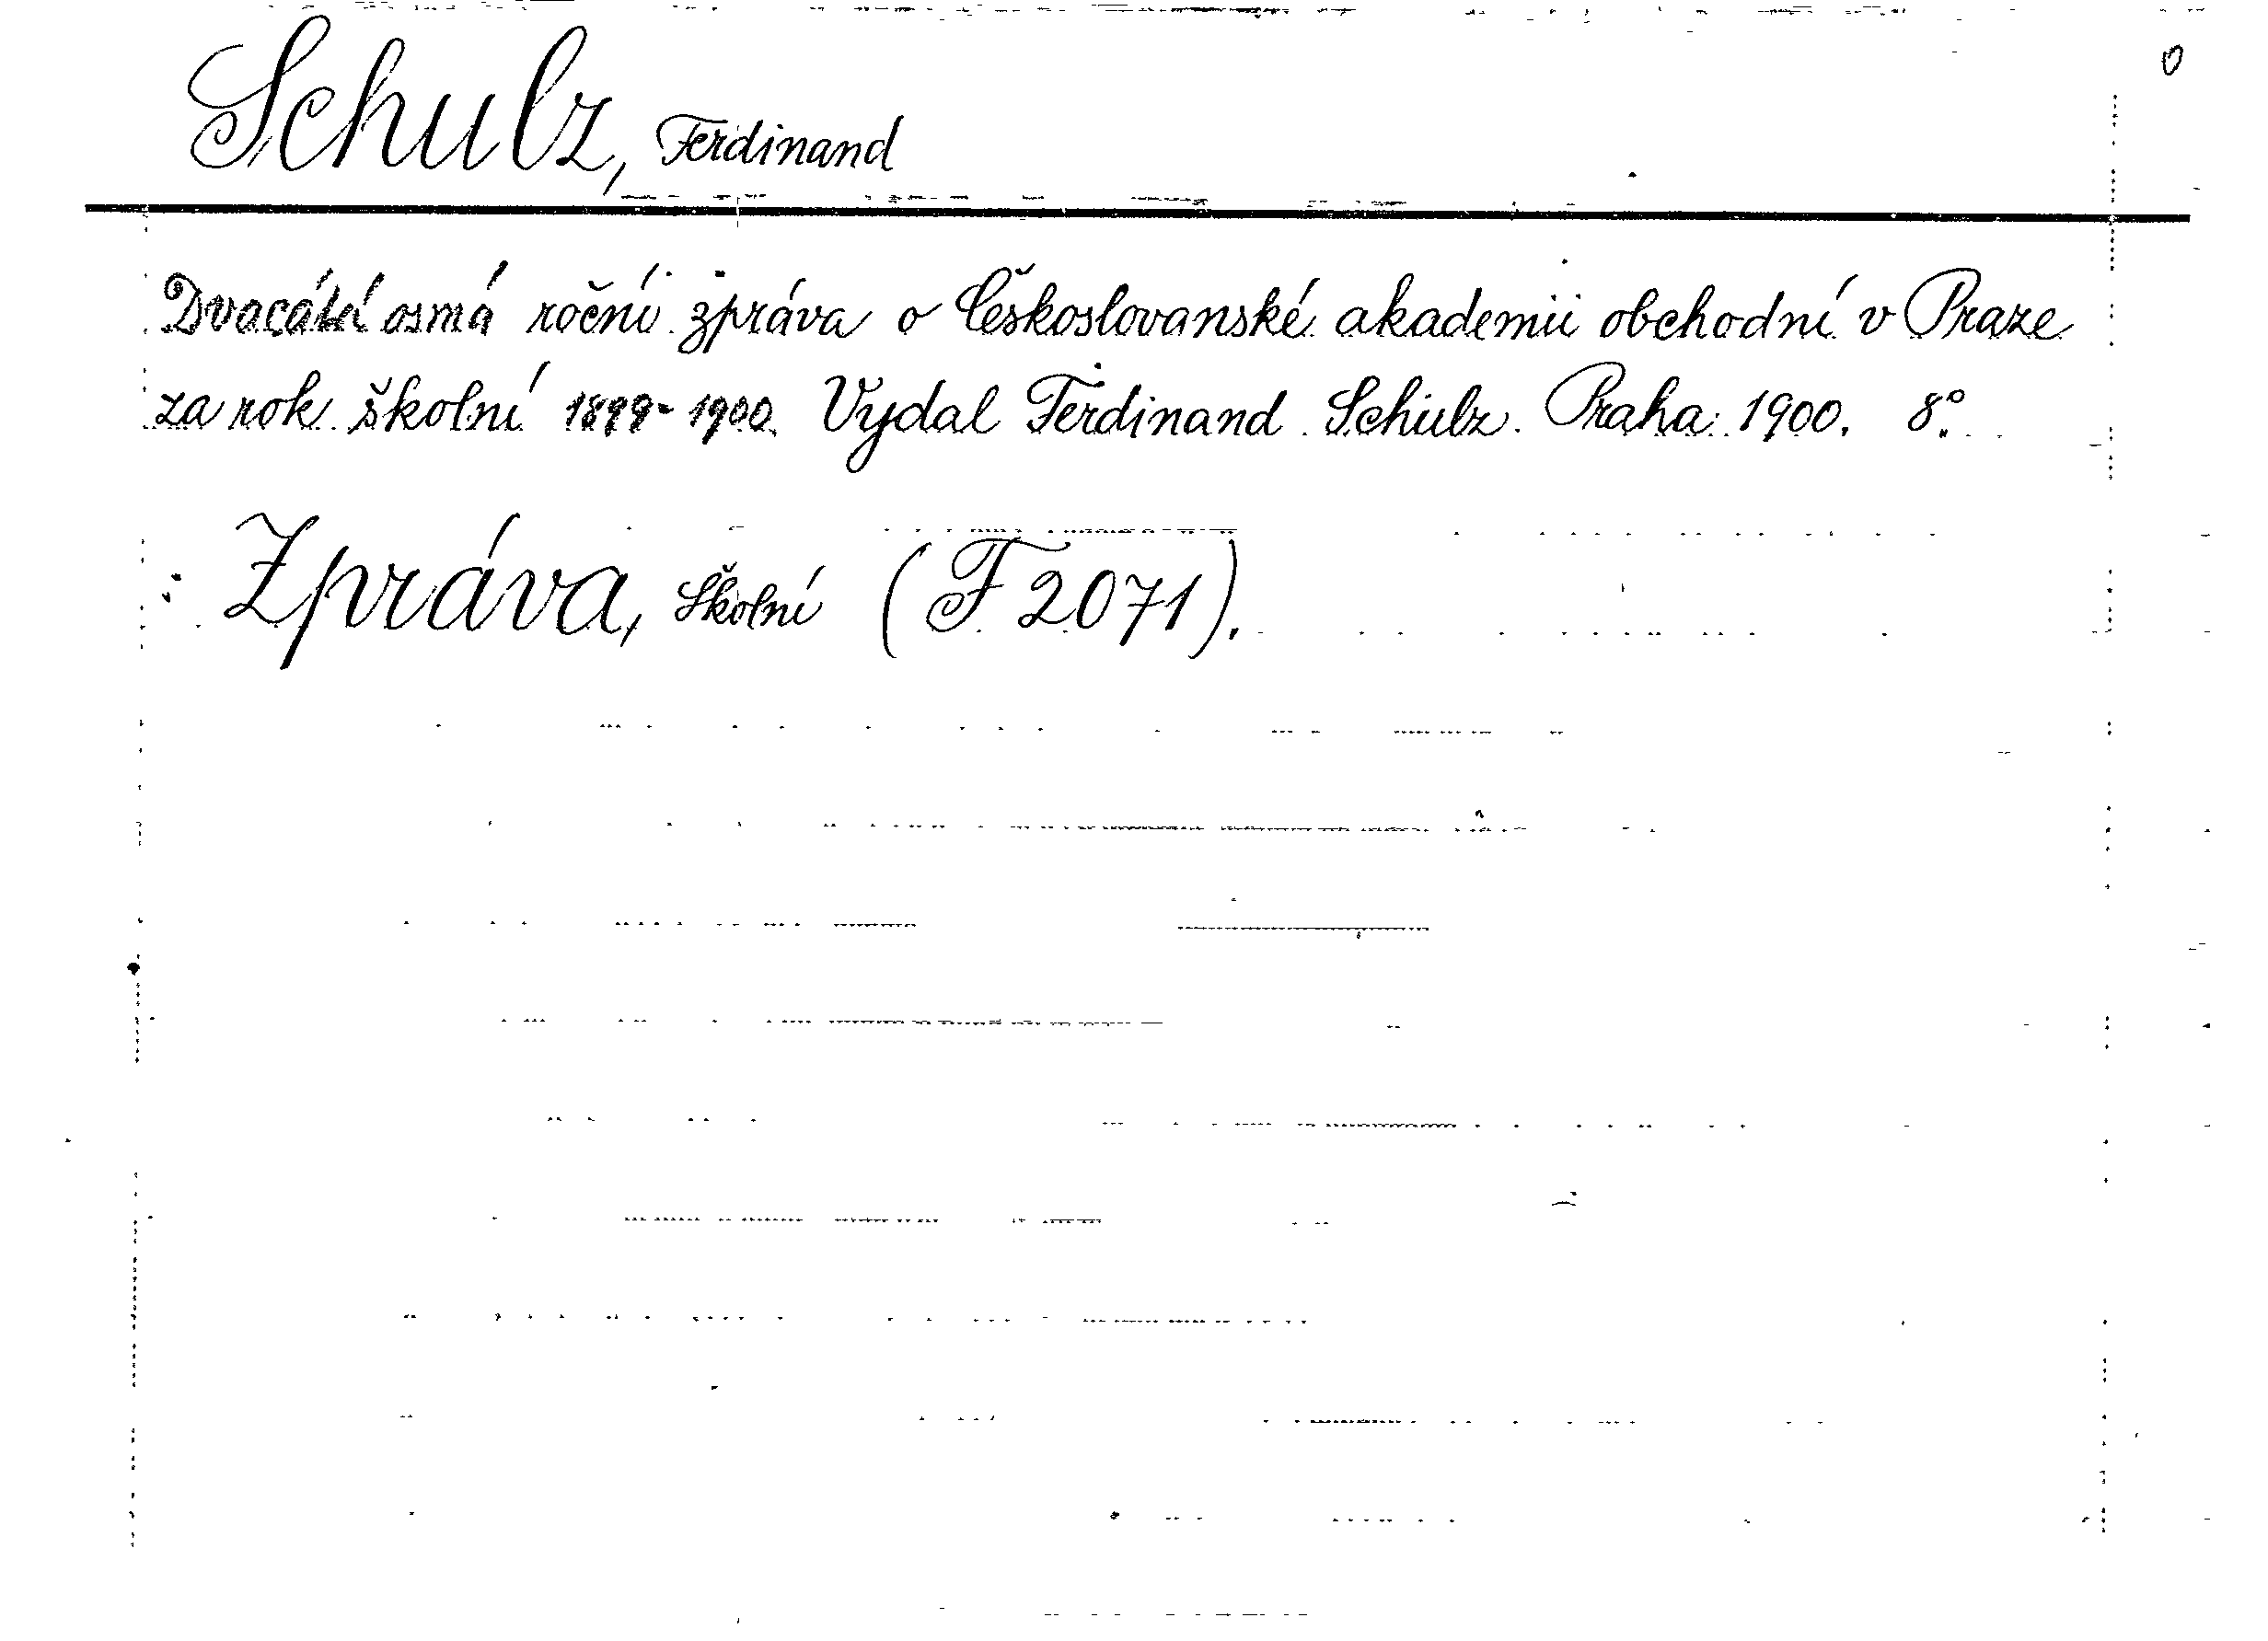 0
Schulz, Ferdinand
Dvacátá osmá roční zpráva o Českoslovanské akademii obchodní v Praze
za rok školní 1899-1900. Vydal Ferdinand Schulz. Praha 1900. 8°.
Zpráva, školní (F 2071).